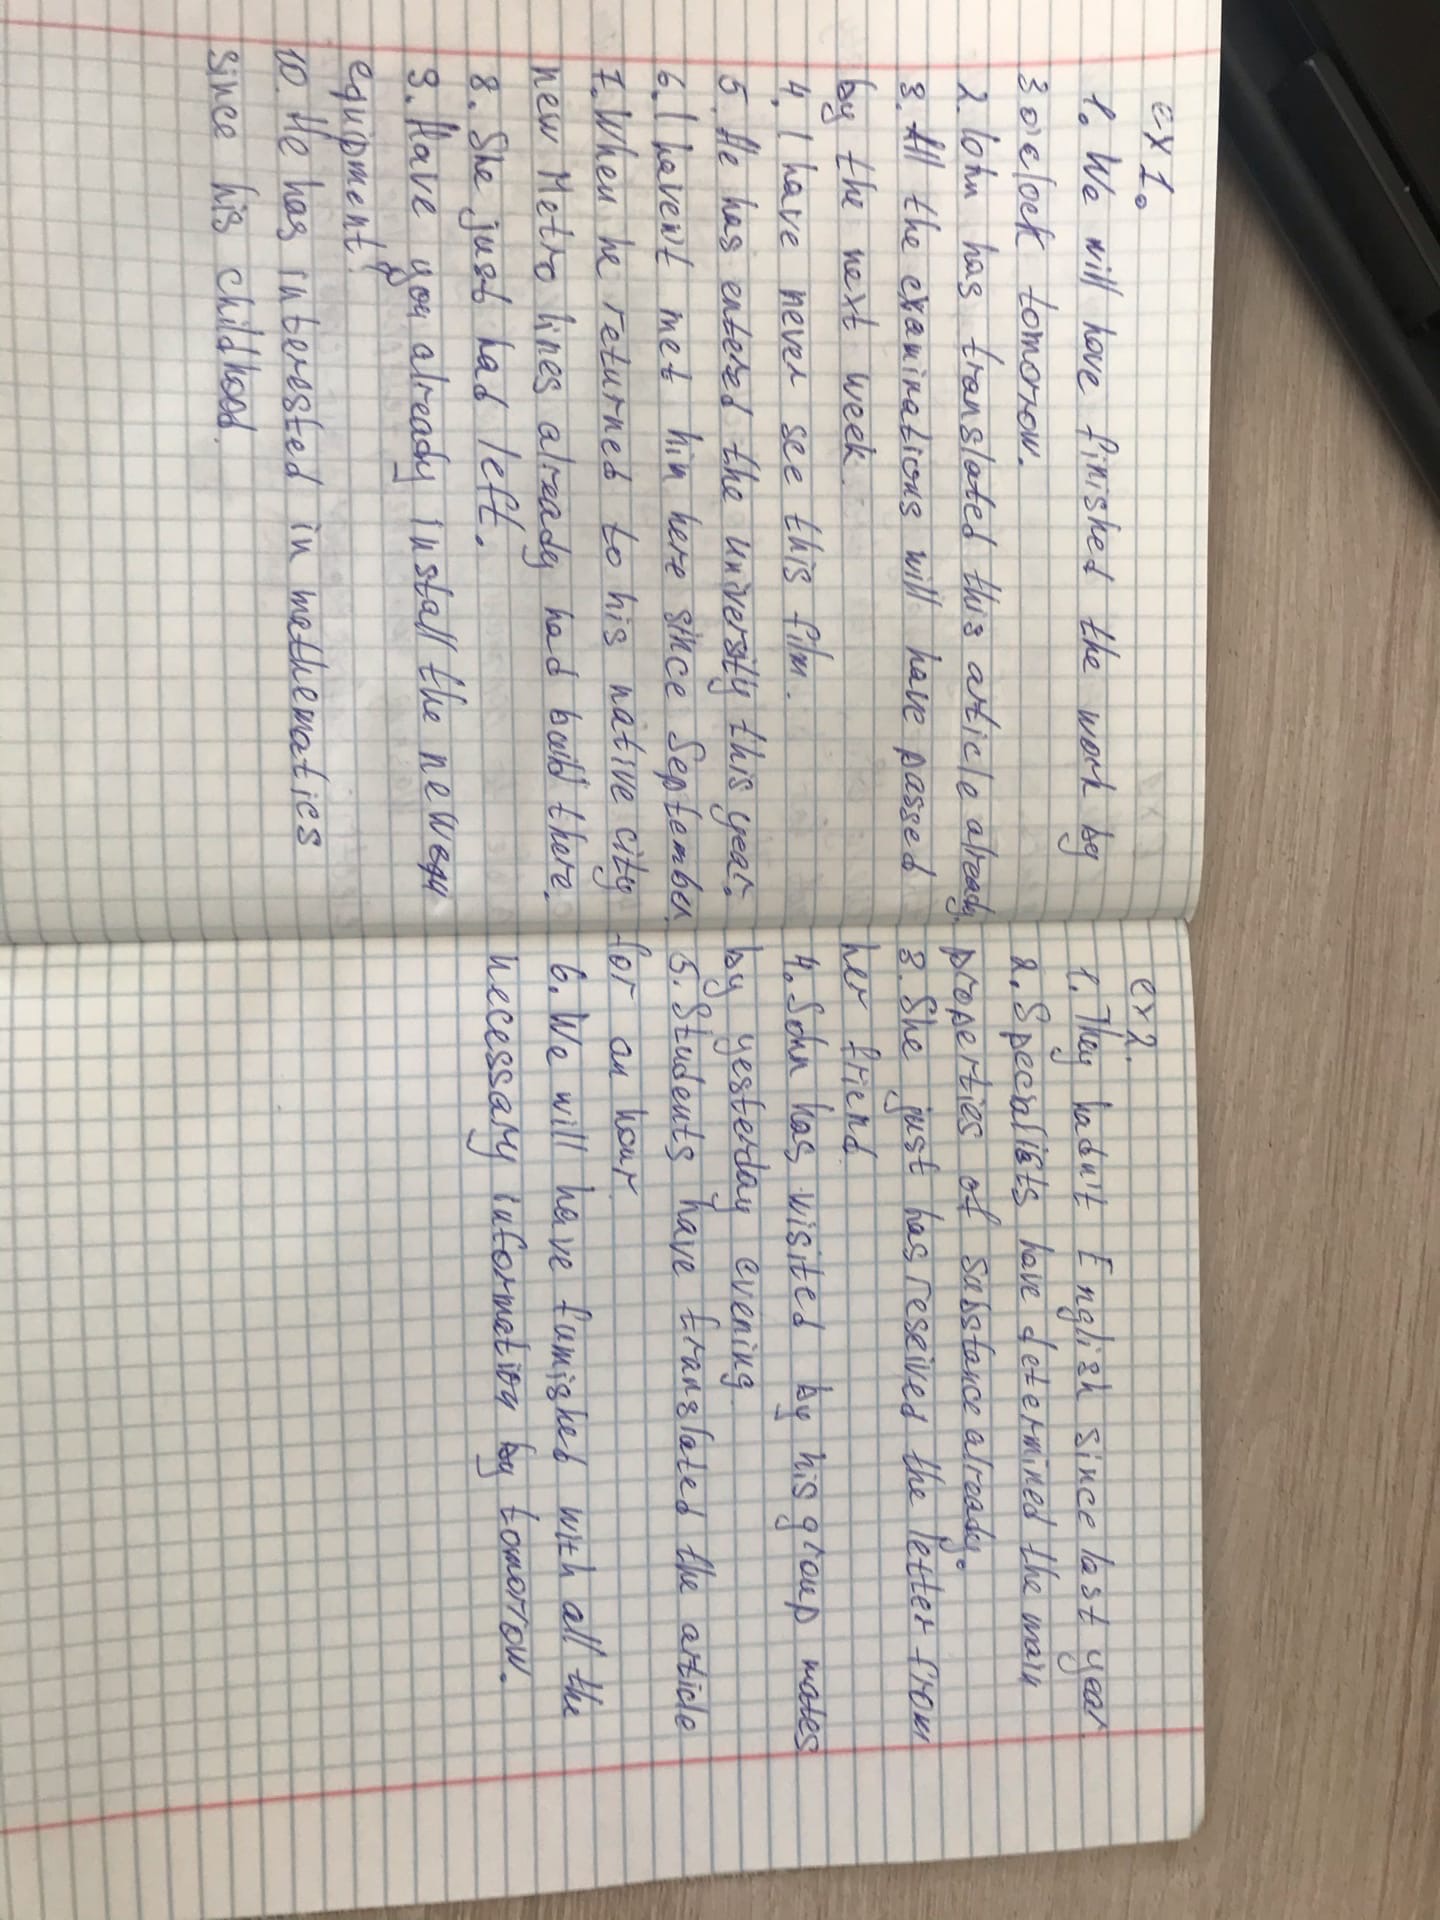 ex 1.
1. We will have finished the work by
3 o'clock tomorrow.
2. John has translated this article already.
3. All the examinations will have passed
by the next week.
4. I have never see this film.
5. He has entered the university this year.
6. I haven't met him here since September.
7. When he returned to his native city
new Metro lines already had built there.
8. She just had left.
9. Have you already install the new
equipment?
10. He has interested in mathematics
since his childhood.
ex 2.
1. They hadn't English since last year.
2. Specialists have determined the main
properties of substance already.
3. She just has reseived the letter from
her friend.
4. John has visited by his group mates
by yesterday evening.
5. Students have translated the article
for an hour.
6. We will have furnished with all the
necessary information by tomorrow.